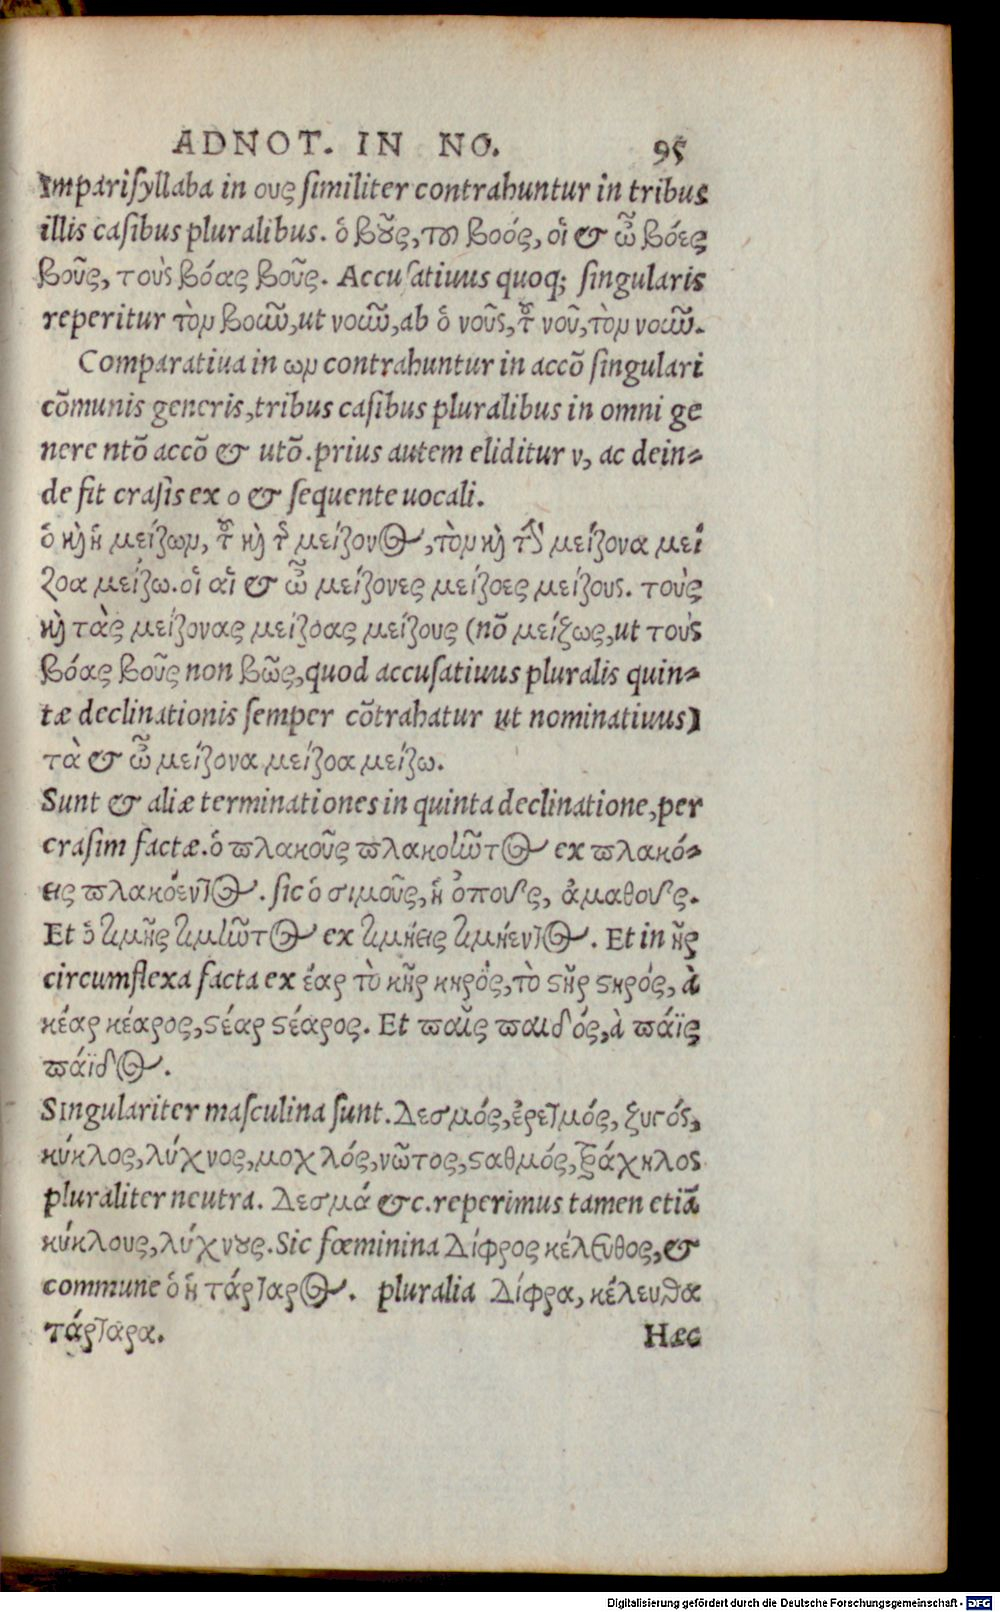 ADNOT. IN NO. 95
Imparisyllaba in ους similiter contrahuntur in tribus
illis casibus pluralibus. ὁ βȣ͂ς, τȣ͂ βοός, οἱ & ὦ βόες
βοῦς, τοὺς βόας βοῦς. Accusatiuus quoq; singularis
reperitur τὸν βοῦν, ut νοῦν, ab ὁ νοῦς, τȣ͂ νοῦ, τὸν νοῦν.
Comparatiua in ων contrahuntur in accō singulari
cōmunis generis, tribus casibus pluralibus in omni ge
nere ntō accō & utō. prius autem eliditur ν, ac dein-
de fit crasis ex ο & sequente uocali.
ὁ καὶ ἡ μείζων, τȣ͂ καὶ τῆς μείζονος, τὸν καὶ τὴν μείζονα μεί
ζοα μείζω. οἱ αἱ & ὦ μείζονες μείζοες μείζους. τοὺς
καὶ τὰς μείζονας μείζοας μείζους (nō μείζως, ut τοὺς
βόας βοῦς non βῶς, quod accusatiuus pluralis quin-
tæ declinationis semper cōtrahatur ut nominatiuus)
τὰ & ὦ μείζονα μείζοα μείζω.
Sunt & aliæ terminationes in quinta declinatione, per
crasim factæ. ὁ πλακοῦς πλακοῦντος ex πλακό-
εις πλακόεντος. sic ὁ σιμοῦς, ἡ ὀποῦς, ἀμαθοῦς.
Et ὁ τιμῆς τιμῆντος ex τιμήεις τιμήεντος. Et in ῆρ
circumflexa facta ex έαρ τὸ κῆρ κηρός, τὸ ϛῆρ ϛηρός, à
κέαρ κέαρος, ϛέαρ ϛέαρος. Et παῖς παιδός, à πάϊς
πάϊδος.
Singulariter masculina sunt. Δεσμός, ἐρετμός, ζυγός,
κύκλος, λύχνος, μοχλός, νῶτος, ϛαθμός, τράχηλος
pluraliter neutra. Δεσμά &c. reperimus tamen etiā
κύκλους, λύχνȣς. Sic fœminina Δίφρος κέλευθος, &
commune ὁ ἡ τάρταρος. pluralia Δίφρα, κέλευθα
τάρταρα. Hæc
Digitalisierung gefördert durch die Deutsche Forschungsgemeinschaft - DFG